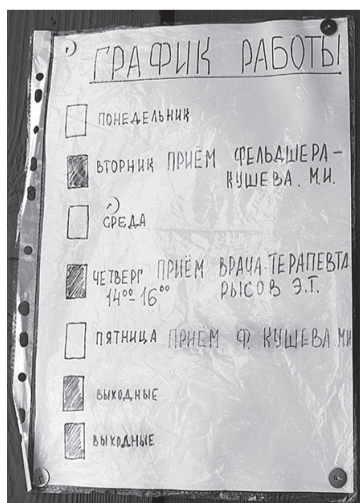 ГРАФИК РАБОТЫ
ПОНЕДЕЛЬНИК
ВТОРНИК ПРИЁМ ФЕЛЬДШЕРА-
КУШЕВА. М.И.
СРЕДА
ЧЕТВЕРГ ПРИЁМ ВРАЧА-ТЕРАПЕВТА
14⁰⁰-16⁰⁰ РЫСОВ Э.Т.
ПЯТНИЦА ПРИЁМ Ф. КУШЕВА М.И
ВЫХОДНЫЕ
ВЫХОДНЫЕ